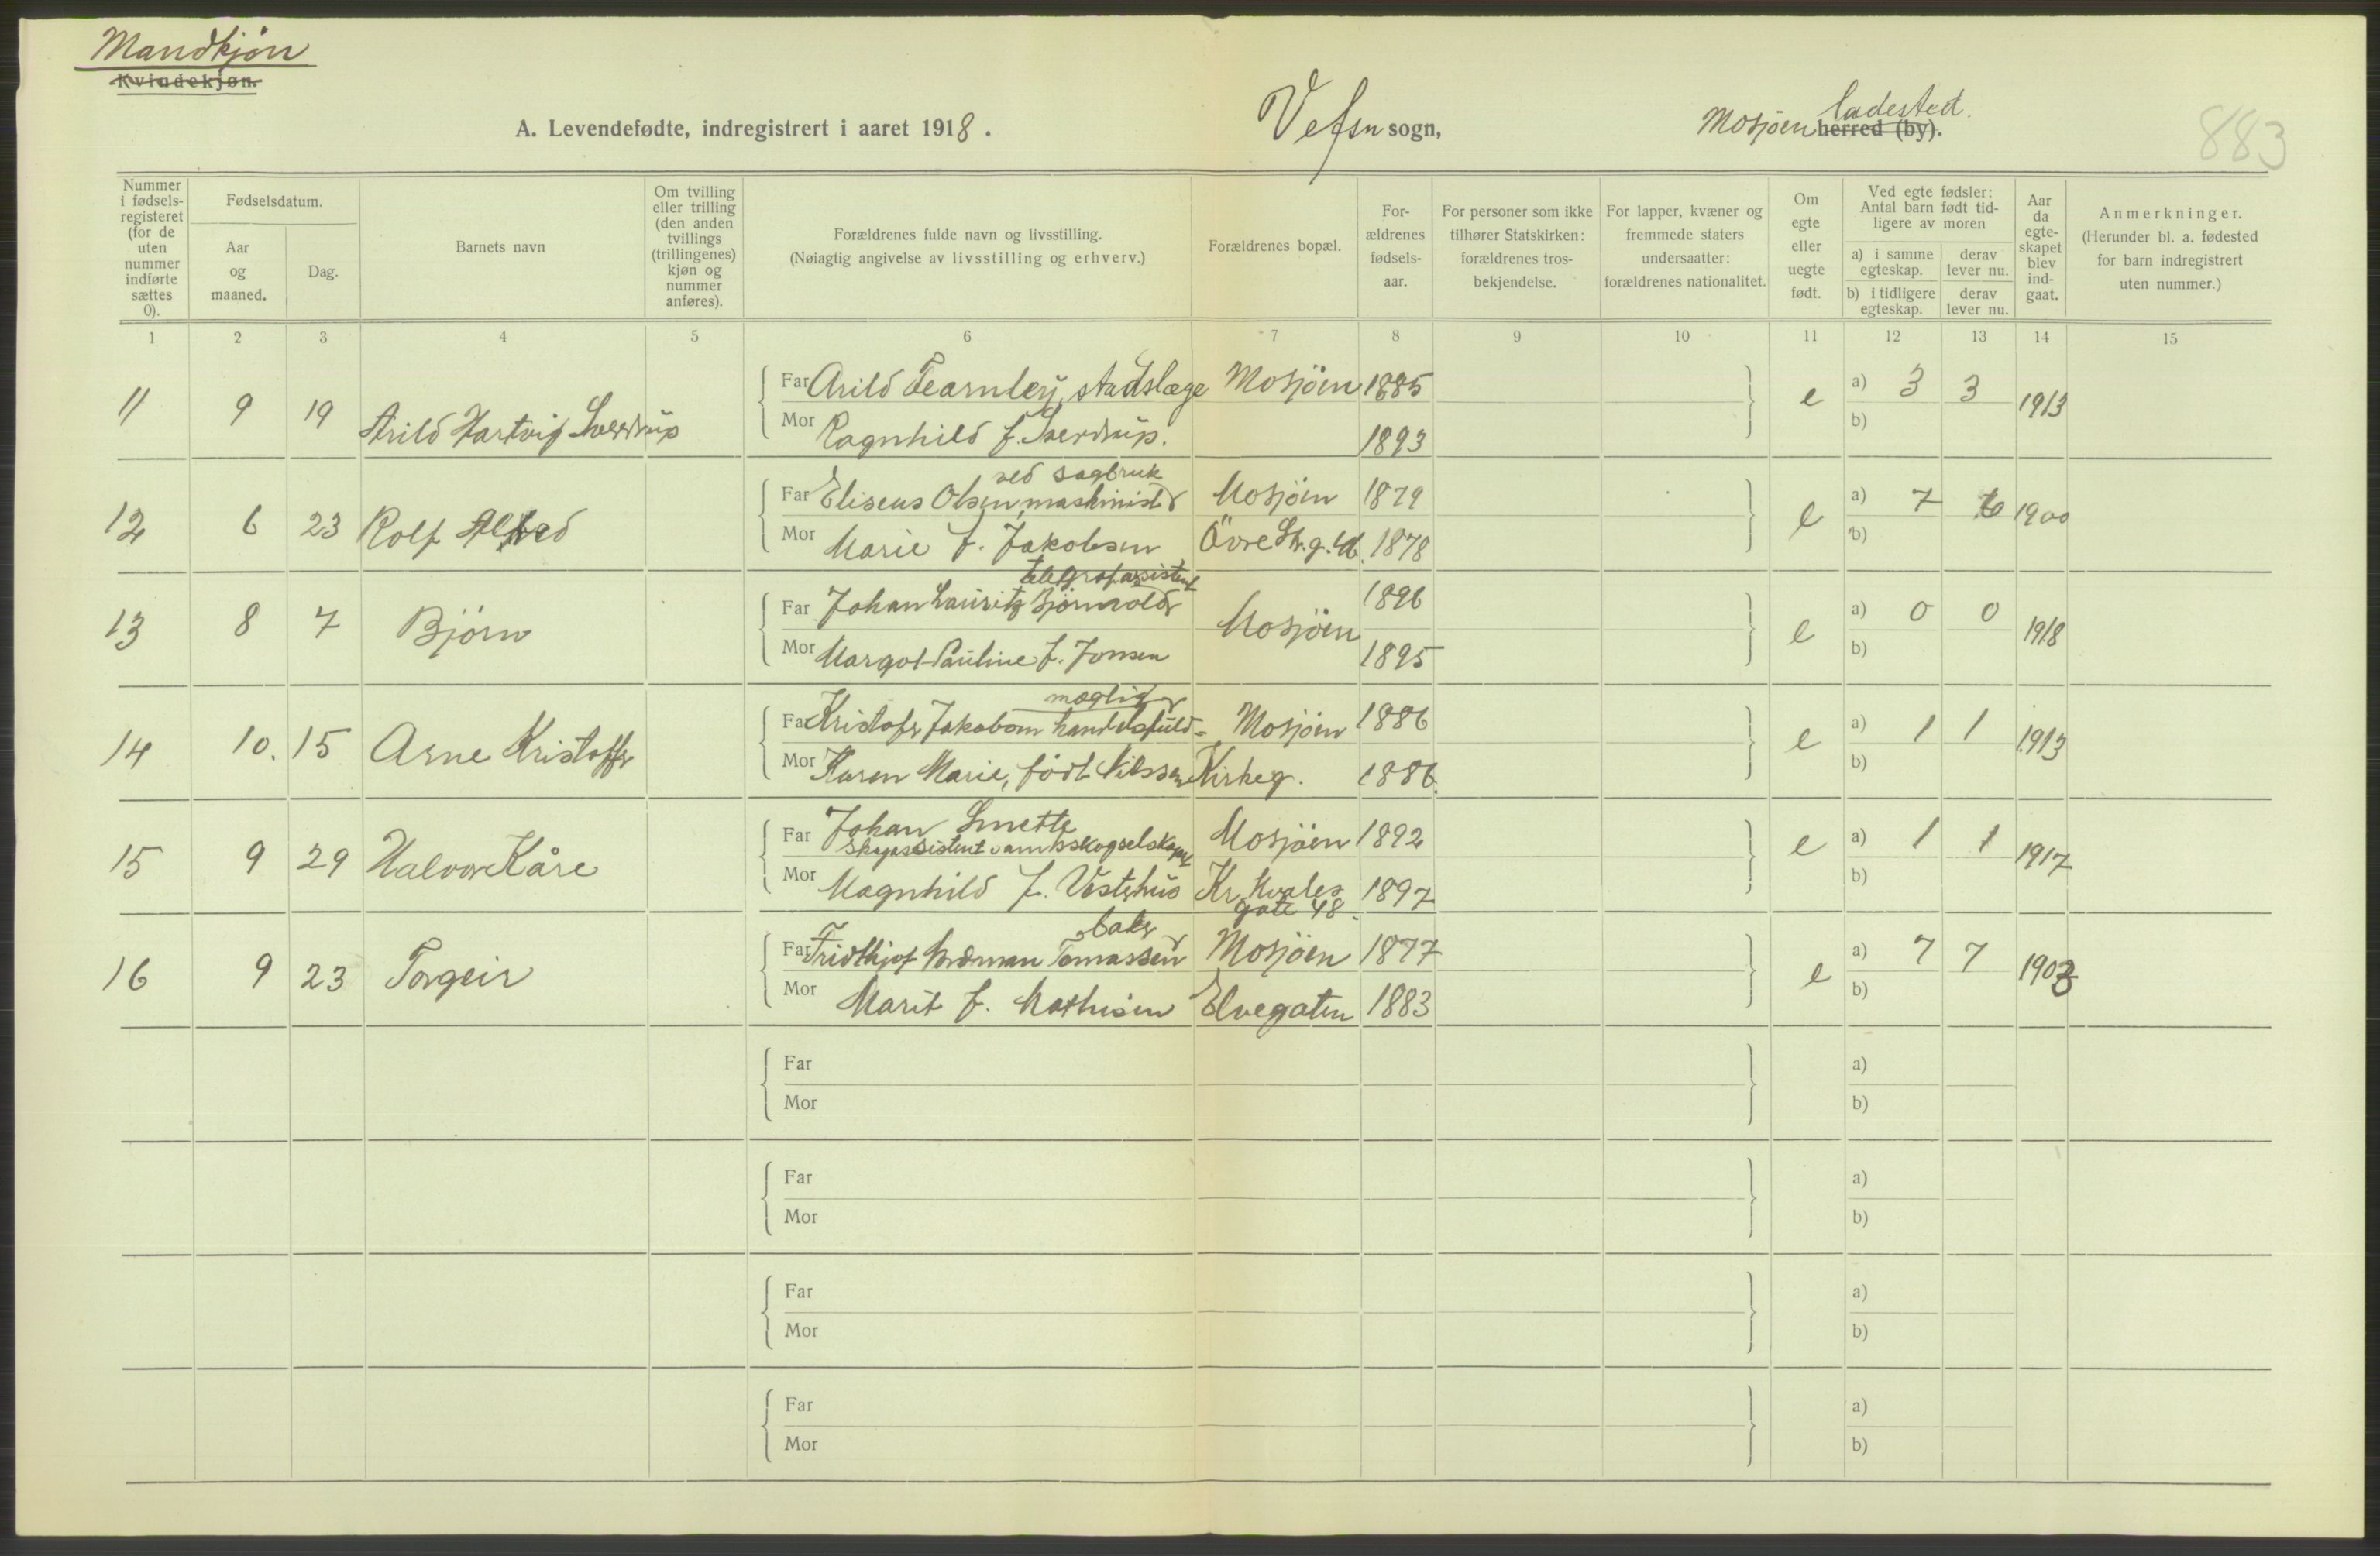 Mandkjön
Kvindekjøn.
A. Levendefødte, indregistrert i aaret 1918. Vefsn sogn, Mosjöen ladested. herred (by).
883
Nummer i fødsels-registeret (for de uten nummer indførte sættes 0).
Fødselsdatum.
Aar og maaned.
Dag.
Barnets navn
Om tvilling eller trilling (den anden tvillings (trillingenes) kjøn og nummer anføres).
Forældrenes fulde navn og livsstilling.
(Nøiagtig angivelse av livsstilling og erhverv.)
Forældrenes bopæl.
For-ældrenes fødsels-aar.
For personer som ikke tilhører Statskirken: forældrenes tros-bekjendelse.
For lapper, kvæner og fremmede staters undersaatter: forældrenes nationalitet.
Om egte eller uegte født.
Ved egte fødsler: Antal barn født tid-ligere av moren
a) i samme egteskap.
derav lever nu.
b) i tidligere egteskap.
derav lever nu.
Aar da egte-skapet blev ind-gaat.
Anmerkninger.
(Herunder bl. a. fødested for barn indregistrert uten nummer.)
1 2 3 4 5 6 7 8 9 10 11 12 13 14 15
Far Arild Fearnley, stadslæge Mosjöen 1885
11 9 19 Arild Hartvig Sverdrup e a) 3 3 1913
Mor Ragnhild f. Sverdrup. 1893 b)
ved sagbruk
Far Eliseus Olsen, maskinist Mosjöen 1879
12 6 23 Rolf Alfred e a) 7 6 1900
Mor Marie f. Jakobsen Övre Str.g. 1878 b)
telegrafassistent
Far Johan Lauritz Björnvold 1896
13 8 7 Björn Mosjöen e a) 0 0 1918
Mor Margot Pauline f. Jonsen 1895 b)
mægtig
Far Kristofer Jakobsen handelsfuld- Mosjöen 1886
14 10. 15 Arne Kristoffer e a) 1 1 1913
Mor Karen Marie, född Nilssen Kirkeg. 1886. b)
Far Johan Smette Mosjöen 1892
skogassistent v amtsskogselskapet
15 9 29 Halvor Kåre e a) 1 1 1917
Mor Magnhild f. Vestehus Kr. Qvales gate 48. 1897 b)
baker
Far Fridthjof Nordman Tomassen Mosjöen 1877
16 9 23 Torgeir e a) 7 7 1903
Mor Marit f. Mathisen Elvegaten 1883 b)
Far a)
Mor b)
Far a)
Mor b)
Far a)
Mor b)
Far a)
Mor b)